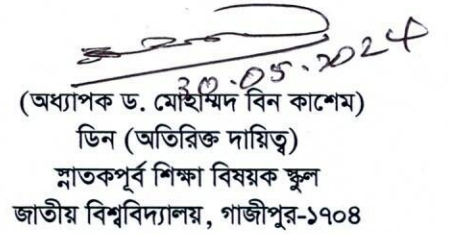 30.05.2024
(অধ্যাপক ড. মোহাম্মদ বিন কাশেম)
ডিন (অতিরিক্ত দায়িত্ব)
স্নাতকপূর্ব শিক্ষা বিষয়ক স্কুল
জাতীয় বিশ্ববিদ্যালয়, গাজীপুর-১৭০৪